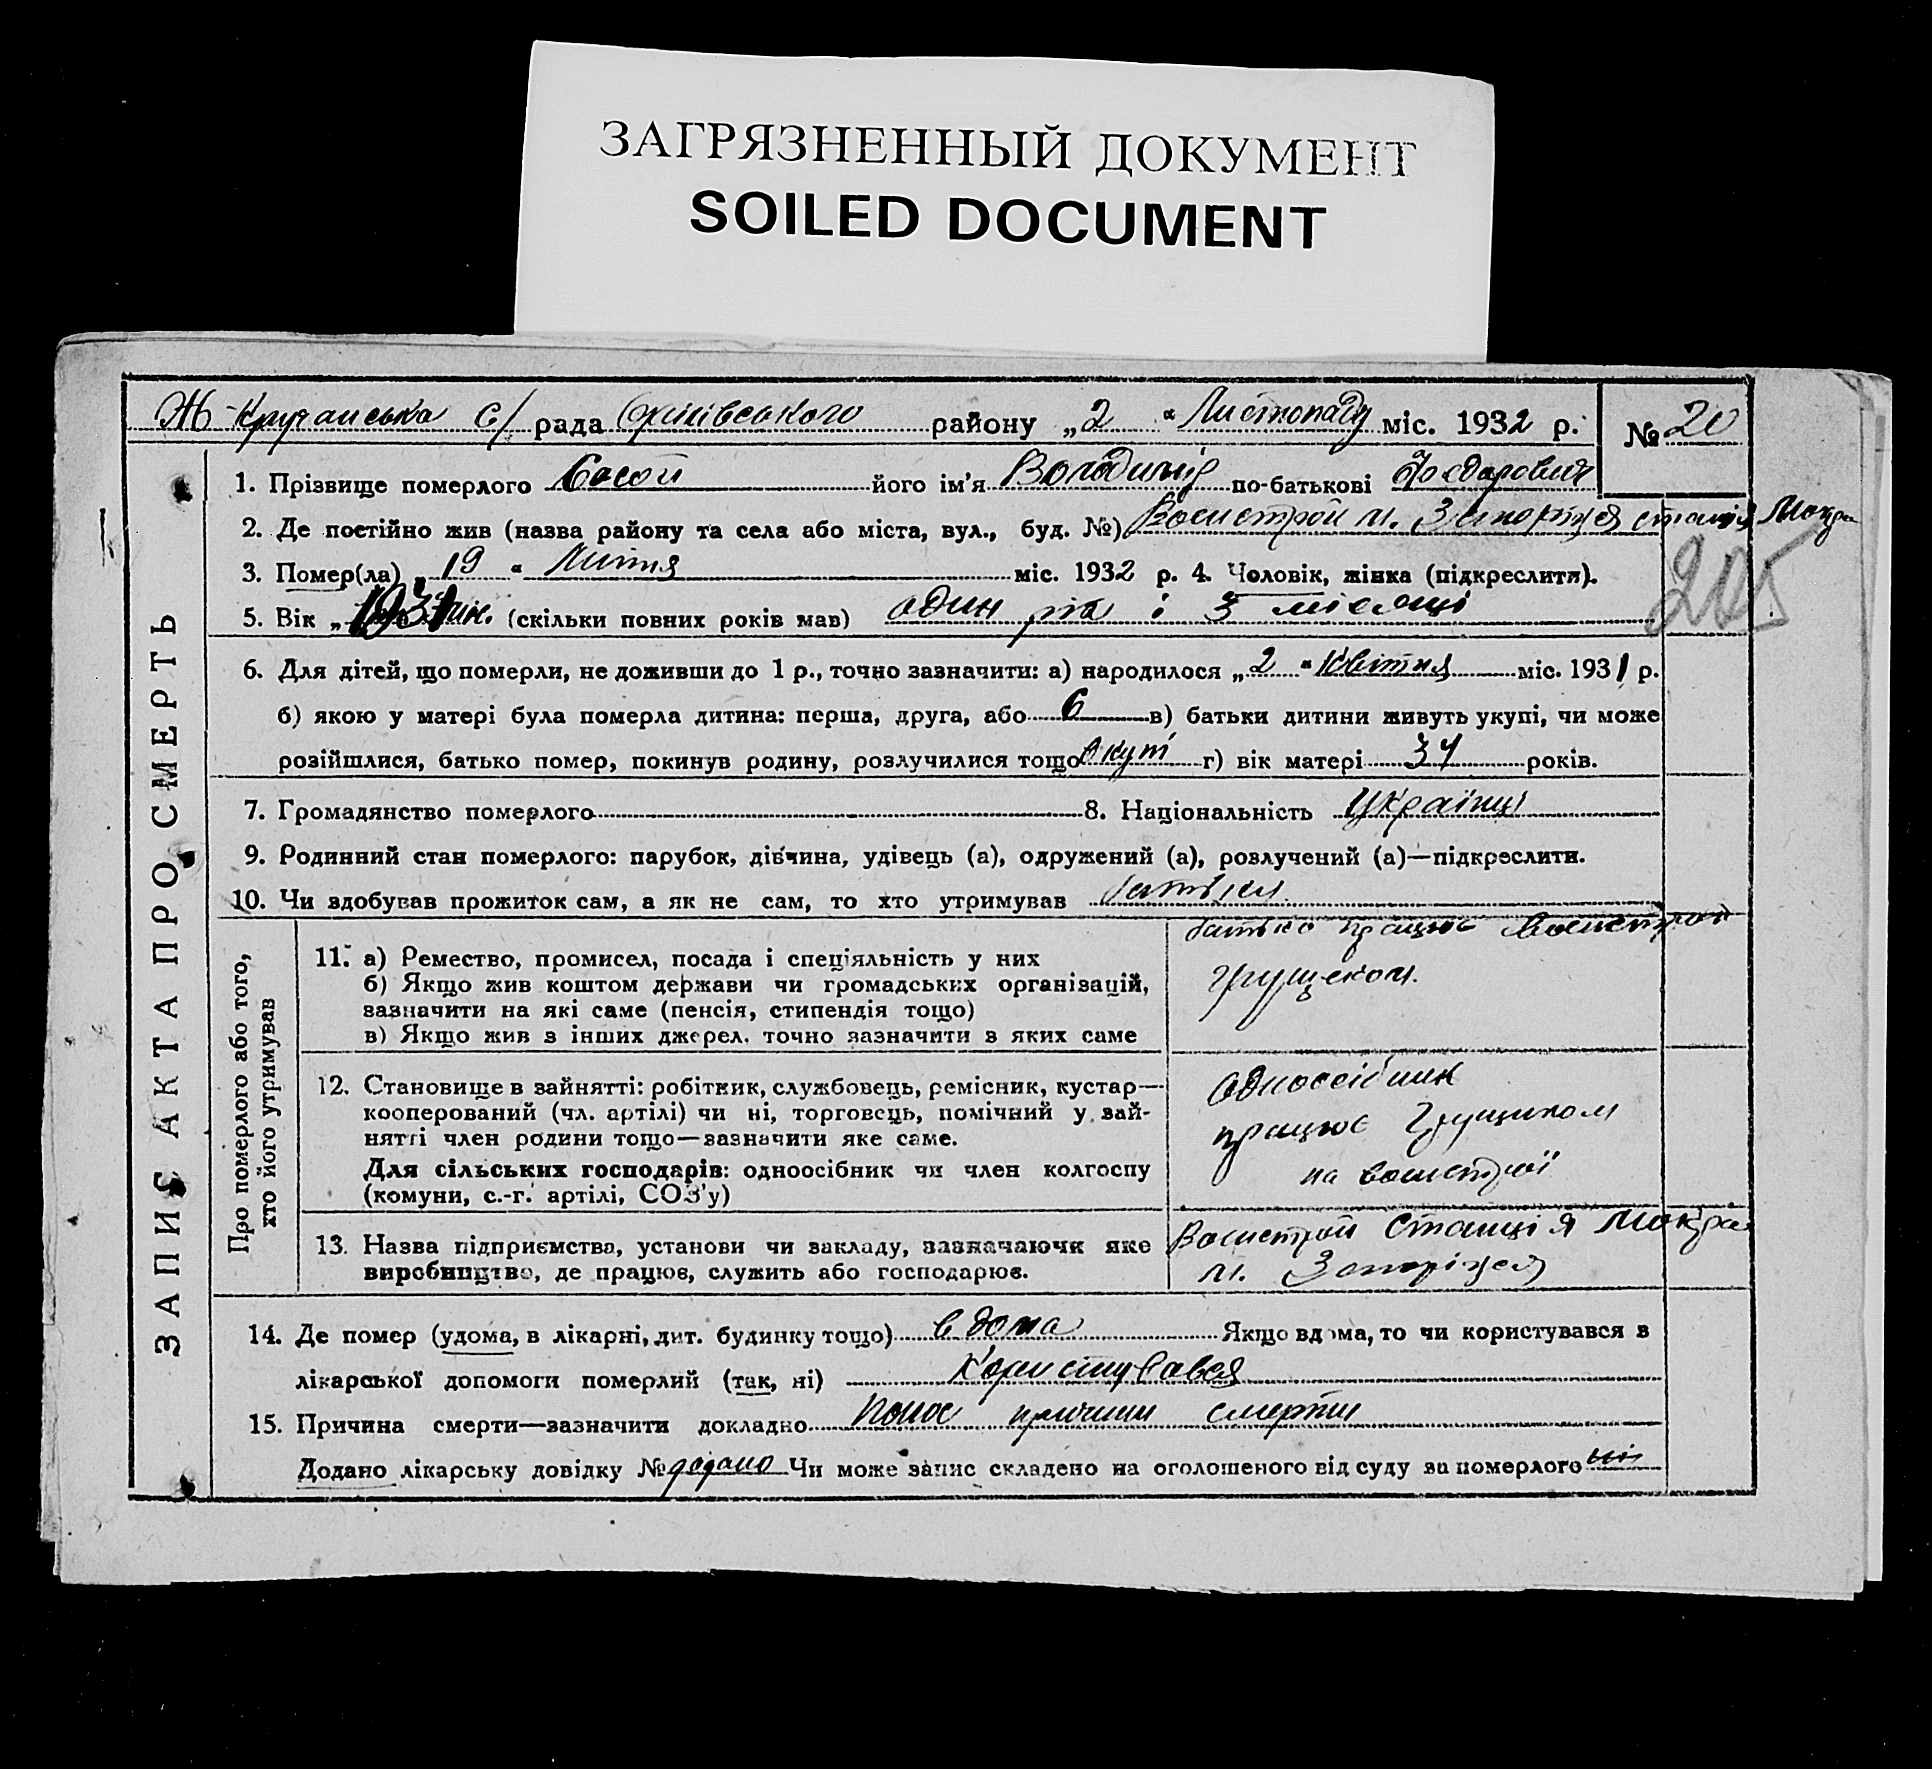 ЗАГРЯЗНЕННЫЙ ДОКУМЕНТ
SOILED DOCUMENT
рада Оріхівського району „2“ Листопаду міс. 1932 р. № 20
1. Прізвище померлого його ім'я Володимір по-батькові Федорович
2. Де постійно жив (назва району та села або міста, вул., буд. №) м. Запоріжжя станія Мокра
3. Помер(ла) „19“ Липня міс. 1932 р. 4. Чоловік, жінка (підкреслити).
205
5. Вік „1931 (скільки повних років мав) один рік і 3 місяці
6. Для дітей, що померли, не доживши до 1 р., точно зазначити: а) народилося „2“ Квітня міс. 1931 р.
б) якою у матері була померла дитина: перша, друга, або 6 в) батьки дитини живуть укупі, чи може
розійшлися, батько помер, покинув родину, розлучилися тощо г) вік матері років.
7. Громадянство померлого 8. Національність Українці
9. Родинний стан померлого: парубок, дівчина, удівець (а), одружений (а), розлучений (а)—підкреслити.
10. Чи здобував прожиток сам, а як не сам, то хто утримував батьки
ЗАПИС АКТА ПРО СМЕРТЬ
Про померлого або того,
хто його утримував
11. а) Ремество, промисел, посада і спеціяльність у них
б) Якщо жив коштом держави чи громадських організацій,
зазначити на які саме (пенсія, стипендія тощо)
в) Якщо жив з інших джерел, точно зазначити з яких саме
батько працює
грущиком.
12. Становище в зайнятті: робітник, службовець, ремісник, кустар—
кооперований (чл. артілі) чи ні, торговець, помічний у зай-
нятті член родини тощо—зазначити яке саме.
Для сільських господарів: одноосібник чи член колгоспу
(комуни, с.-г. артілі, СОЗ'у)
одноосібник
працює Грущиком
на
13. Назва підприємства, установи чи закладу, зазначаючи яке
виробництво, де працює, служить або господарює.
Станція Мокра
м. Запоріжжя
14. Де помер (удома, в лікарні, дит. будинку тощо) вдома Якщо вдома, то чи користувався з
лікарської допомоги померлий (так, ні) Користувався
15. Причина смерти—зазначити докладно Понос причини смерти
Додано лікарську довідку № додано Чи може запис складено на оголошеного від суду за померлого ні